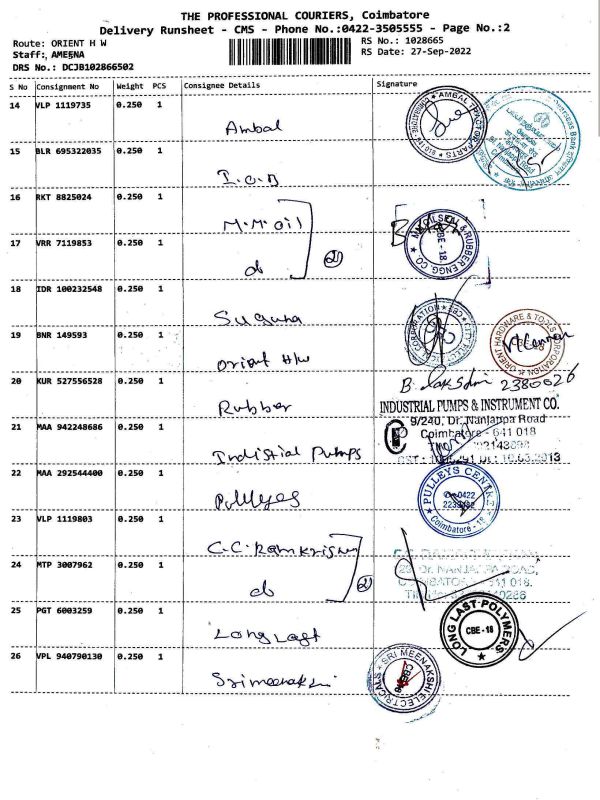 THE PROFESSIONAL COURIERS, Coimbatore
Delivery Runsheet - CMS - Phone No.:0422-3505555 - Page No.:2
Route: ORIENT H W
RS No.: 1028665
Staff:, AMEENA
RS Date: 27-Sep-2022
DRS No.: DCJB102866502
S No Consignment No Weight PCS Consignee Details Signature
14 VLP 1119735 0.250 1
Ambal
15 BLR 695322035 0.250 1
I.O.B
16 RKT 8825024 0.250 1
M.M.oil
17 VRR 7119853 0.250 1
do (2)
CBE - 18
18 IDR 100232548 0.250 1
Suguna
19 BNR 149593 0.250 1
Orient H/w
20 KUR 527556528 0.250 1
Rubber
B 2380026
INDUSTRIAL PUMPS & INSTRUMENT CO.
21 MAA 942248686 0.250 1
9/240, Dr. Nanjappa Road
Coimbatore - 641 018
Indistial Pumps
22 MAA 292544400 0.250 1
PULLEYS CENTRE
Coimbatore - 18
Pullyes
23 VLP 1119803 0.250 1
C.C. Ramkrishn
24 MTP 3007962 0.250 1
do (2)
NANJAPPA ROAD,
COIMBATORE - 641 018.
25 PGT 6003259 0.250 1
LONG LAST POLYMERS
CBE - 18
Long Last
26 VPL 940790130 0.250 1
SRI MEENAKSHI ELECTRICALS
Srimeenakshi